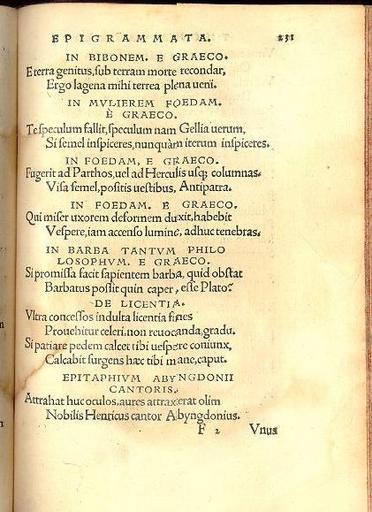 EPIGRAMMATA. 231
IN BIBONEM. E GRAECO.
E terra genitus, sub terram morte recondar,
Ergo lagena mihi terrea plena ueni.
IN MVLIEREM FOEDAM.
È GRAECO.
Te speculum fallit, speculum nam Gellia uerum,
Si semel inspiceres, nunquàm iterum inspiceres.
IN FOEDAM, E GRAECO.
Fugerit ad Parthos, uel ad Herculis usq; columnas,
Visa semel, positis uestibus, Antipatra.
IN FOEDAM. E GRAECO.
Qui miser uxorem deformem duxit, habebit
Vespere, iam accenso lumine, adhuc tenebras.
IN BARBA TANTVM PHILO
LOSOPHVM. E GRAECO.
Si promissa facit sapientem barba, quid obstat
Barbatus possit quin caper, esse Plato?
DE LICENTIA.
Vltra concessos indulta licentia fines
Prouehitur celeri, non reuocanda, gradu.
Si patiare pedem calcet tibi uespere coniunx,
Calcabit surgens hæc tibi mane, caput.
EPITAPHIVM ABYNGDONII
CANTORIS.
Attrahat huc oculos, aures attraxerat olim
Nobilis Henricus cantor Abyngdonius.
F 2 Vnus